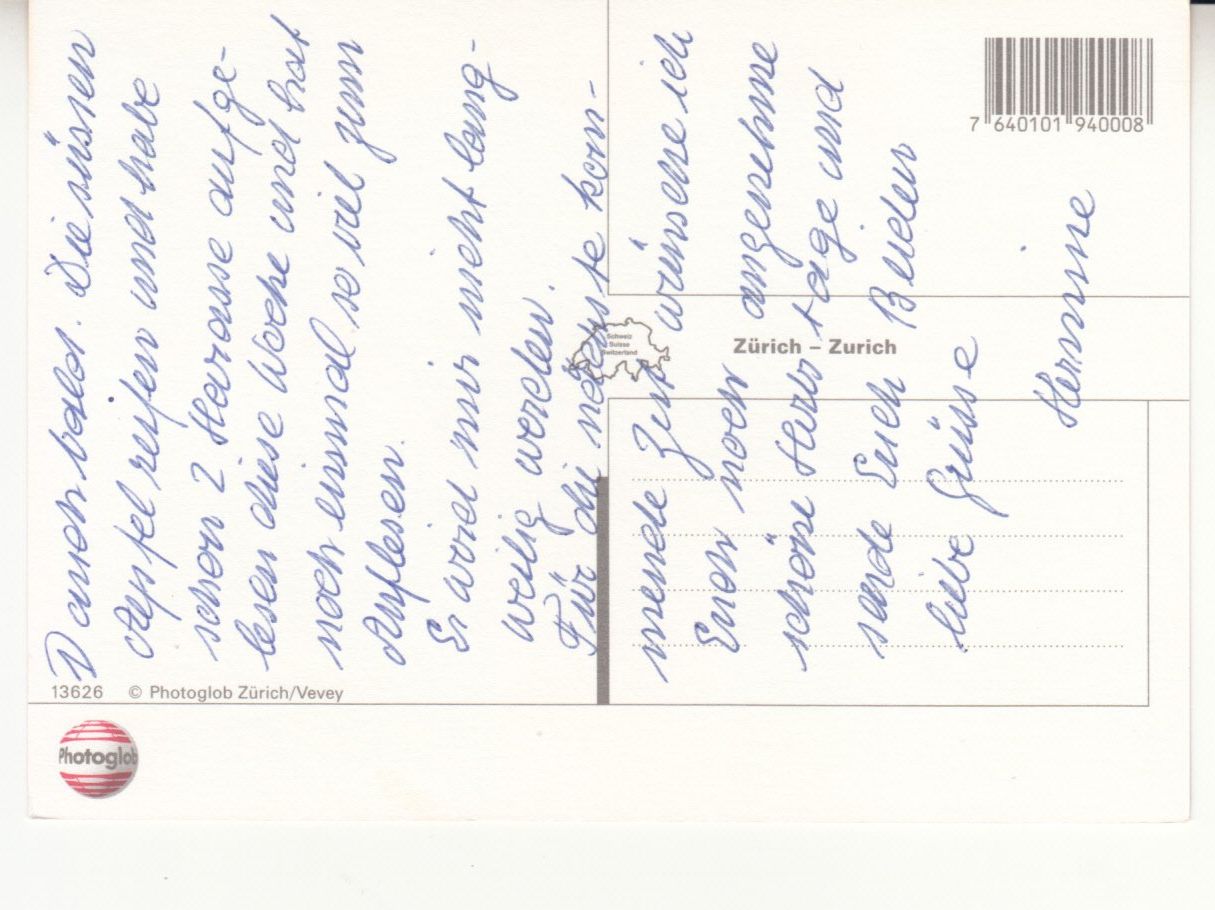 Danach bald. Die süssen
Aepfel reifen und habe
schon 2 Harasse aufge-
lesen diese Woche und hat
noch einmal so viel zum
Auflesen.
Es wird mir nicht lang-
weilig werden.
Für die nächste kom-
mende Zeit wünsche ich
Euch noch angenehme
schöne Herbsttage und
sende Euch Beiden
liebe Grüsse
Hermine
7 640101 940008
Schweiz
Suisse
Switzerland
Zürich – Zurich
13626 © Photoglob Zürich/Vevey
Photoglob